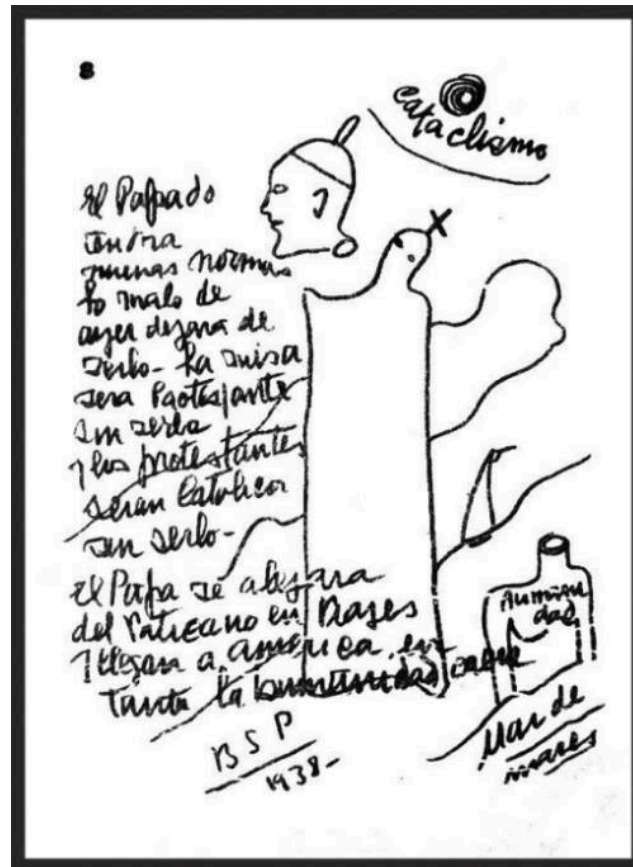 8
cataclismo
El Papado
tendra
nuevas normas
lo malo de
ayer dejara de
serlo - La misa
sera Protestante
sin serlo
y los protestantes
seran Catolicos
sin serlo -
El Papa se alejara
del Vaticano en Viajes
y llegara a America, en
tanto la humanidad caera
Humani
dad
Mar de
mares
B S P
1938-